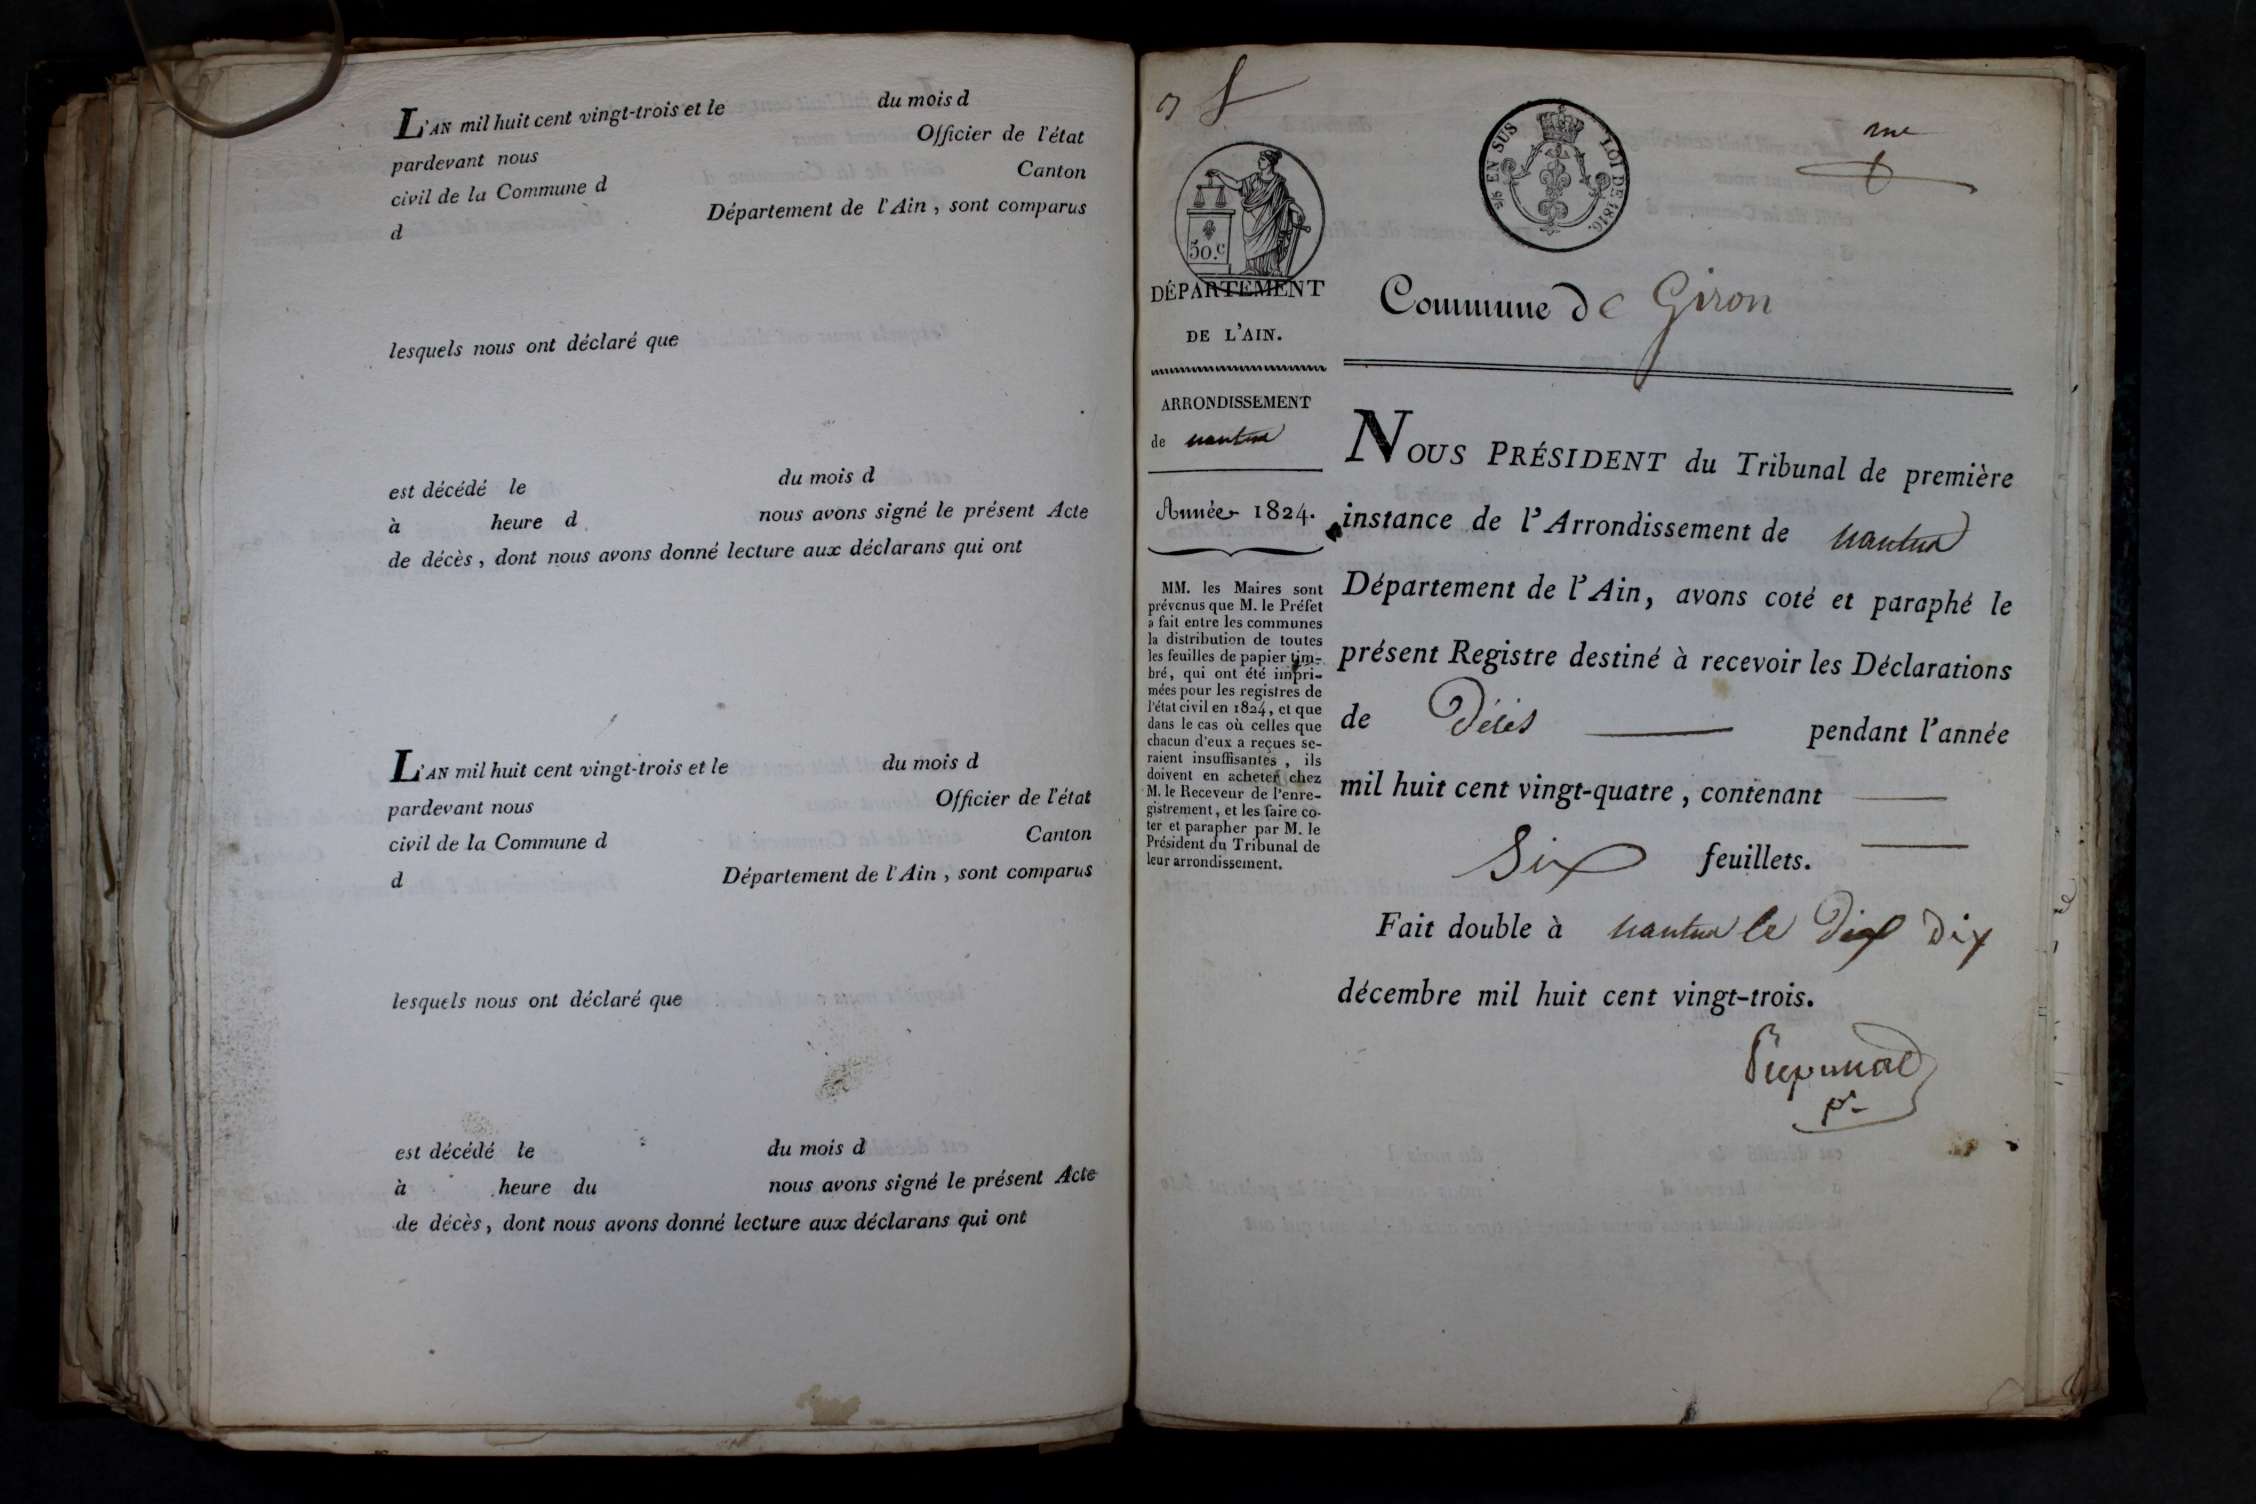 L'AN mil huit cent vingt-trois et le du mois d
pardevant nous Officier de l'état
civil de la Commune d Canton
d Département de l'Ain, sont comparus
lesquels nous ont déclaré que
est décédé le du mois d
à heure d nous avons signé le présent Acte
de décès, dont nous avons donné lecture aux déclarans qui ont
L'AN mil huit cent vingt-trois et le du mois d
pardevant nous Officier de l'état
civil de la Commune d Canton
d Département de l'Ain, sont comparus
lesquels nous ont déclaré que
est décédé le du mois d
à heure du nous avons signé le présent Acte
de décès, dont nous avons donné lecture aux déclarans qui ont
50.c
EN SUS LOI DE 1816.
DÉPARTEMENT
DE L'AIN.
ARRONDISSEMENT
de nantua
Année 1824.
MM. les Maires sont
prévenus que M. le Préfet
a fait entre les communes
la distribution de toutes
les feuilles de papier tim-
bré, qui ont été impri-
mées pour les registres de
l'état civil en 1824, et que
dans le cas où celles que
chacun d'eux a reçues se-
raient insuffisantes, ils
doivent en acheter chez
M. le Receveur de l'enre-
gistrement, et les faire co-
ter et parapher par M. le
Président du Tribunal de
leur arrondissement.
Commune de Giron
NOUS PRÉSIDENT du Tribunal de première
instance de l'Arrondissement de nantua
Département de l'Ain, avons coté et paraphé le
présent Registre destiné à recevoir les Déclarations
de Décès pendant l'année
mil huit cent vingt-quatre, contenant
Six feuillets.
Fait double à nantua le Dix Dix
décembre mil huit cent vingt-trois.